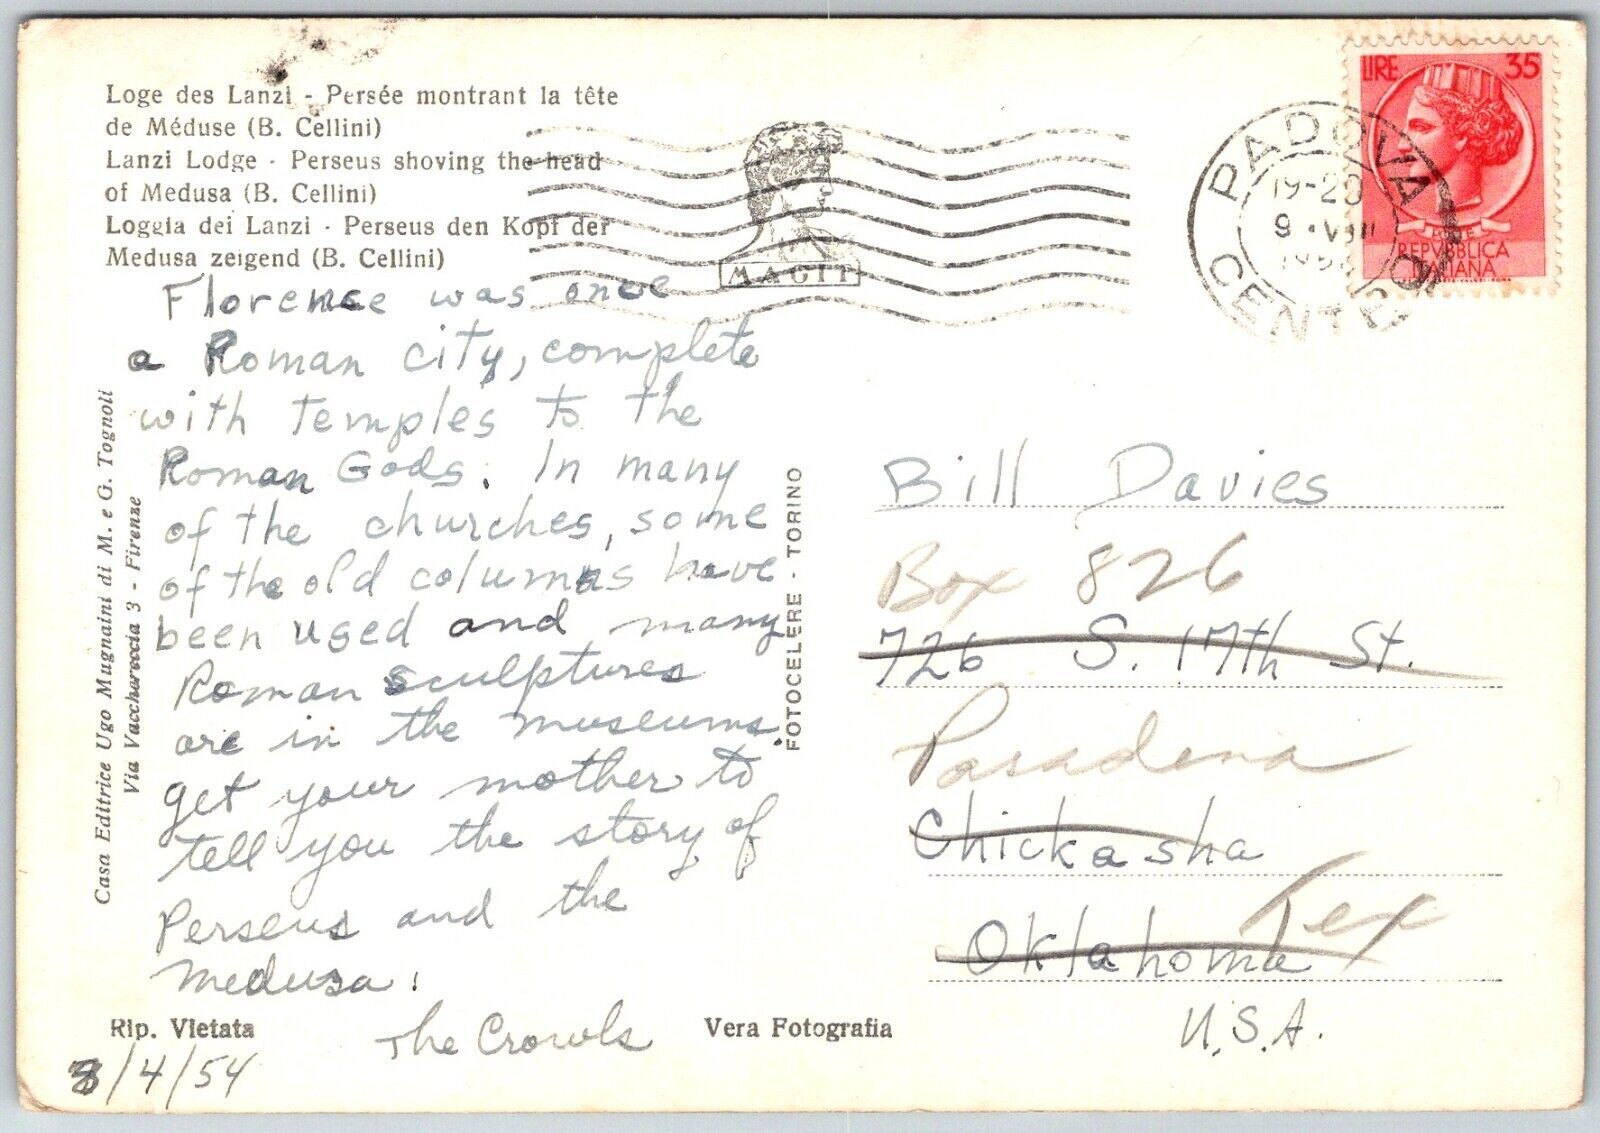 Loge des Lanzi - Persée montrant la tête
de Méduse (B. Cellini)
Lanzi Lodge - Perseus shoving the head
of Medusa (B. Cellini)
Loggia dei Lanzi - Perseus den Kopf der
Medusa zeigend (B. Cellini)
Florence was once
a Roman city, complete
with temples to the
Roman Gods. In many
of the churches, some
of the old columns have
been used and many
Roman sculptures
are in the museums
get your mother to
tell you the story of
Perseus and the
Medusa.
The Crowls
Rip. Vietata
Vera Fotografia
8/4/54
Casa Editrice Ugo Mugnaini di M. e G. Tognoli
Via Vacchereccia 3 - Firenze
FOTOCELERE - TORINO
MAGIT
PADOVA
CENTRO
19-20
9 VIII
LIRE 35
REPVBBLICA
ITALIANA
Bill Davies
Box 826
726 S. 17th St.
Pasadena
Chickasha
Tex
Oklahoma
U.S.A.